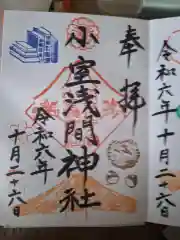 奉拝
小室浅間神社
令和六年
十月二十六日
令和六年十月二十六日